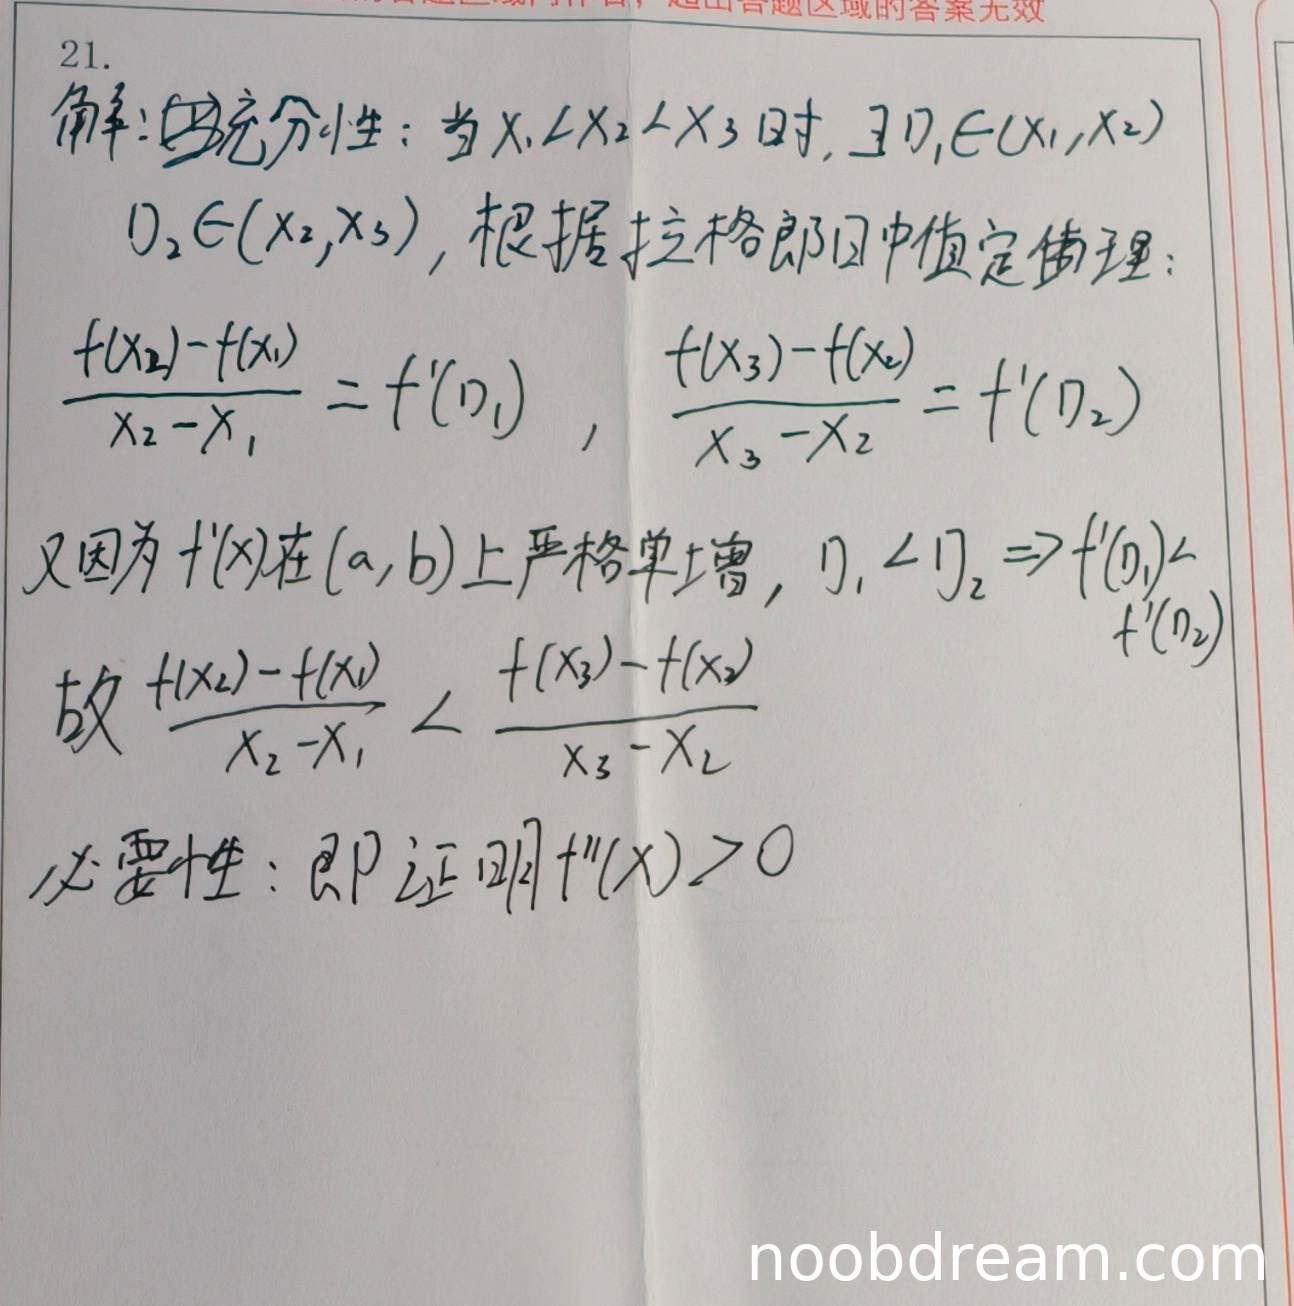 超出答题区域的答案无效
21.
解:充分性:当 x₁<x₂<x₃时,∃η₁∈(x₁,x₂)
η₂∈(x₂,x₃),根据拉格郎日中值定理:
(f(x₂)-f(x₁))/(x₂-x₁) = f'(η₁) , (f(x₃)-f(x₂))/(x₃-x₂) = f'(η₂)
又因为 f'(x)在(a,b)上严格单增,η₁<η₂ ⇒ f'(η₁)<
f'(η₂)
故 (f(x₂)-f(x₁))/(x₂-x₁) < (f(x₃)-f(x₂))/(x₃-x₂)
必要性:即证明f''(x)>0
noobdream.com